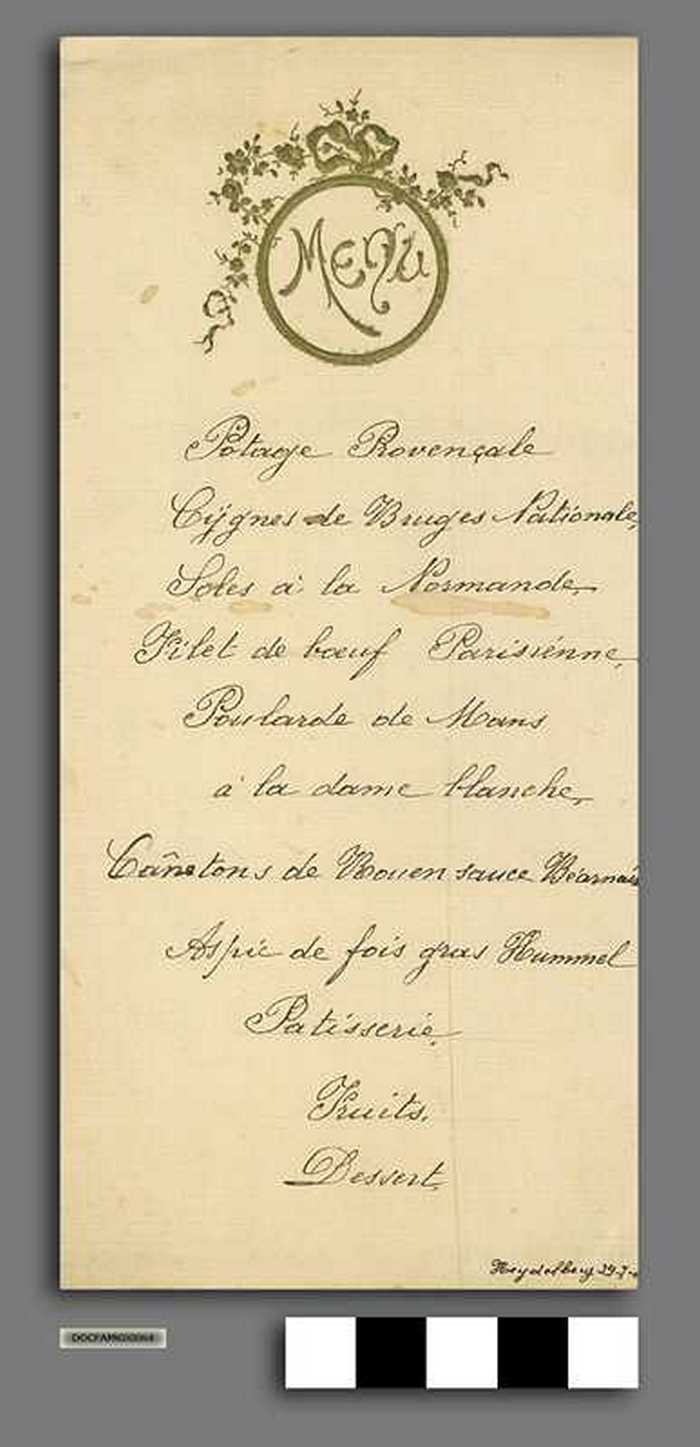 Menu
Potage Provençale
Cÿgnes de Bruges Nationale,
Soles à la Normande,
Filet de bœuf Parisiénne,
Poularde de Mans
à la dame blanche,
Cañetons de Rouen sauce Béarnais
Aspic de fois gras Hummel
Patisserie,
Fruits,
Dessert,
Heydelberg 29-7-